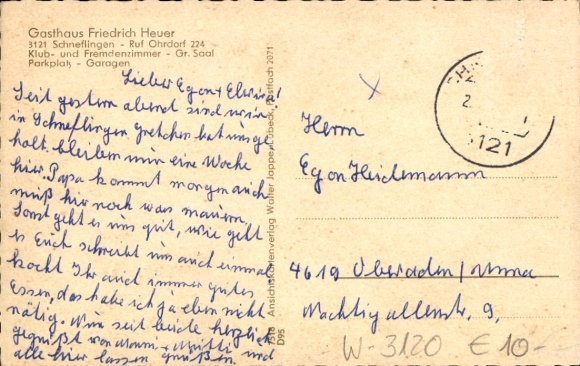 Gasthaus Friedrich Heuer
3121 Schneflingen - Ruf Ohrdorf 224
Klub- und Fremdenzimmer - Gr. Saal
Parkplatz - Garagen
Lieber Egon + Elwira!
Seit gestern abend sind wir
in Schneflingen Gretchen hat uns ge
holt. bleiben nur eine Woche
hier. Papa kommt morgen auch
muß hier noch was mauern.
Sonst geht es uns gut, wie geht
es Euch schreibt uns auch einmal
kocht Ihr auch immer gutes
Essen, das habe ich ja eben nicht
nötig. Nun seid beide herzlich
gegrüßt von Mutti und
alle hier lassen grüßen.
7516 Ansichtskartenverlag Walter Jappe, Lübeck, Postfach 2071
D95
121
Herrn
Egon Heidemann
4619 Oberaden / Unna
Nachtigallenstr. 9,
W-3120 € 10-